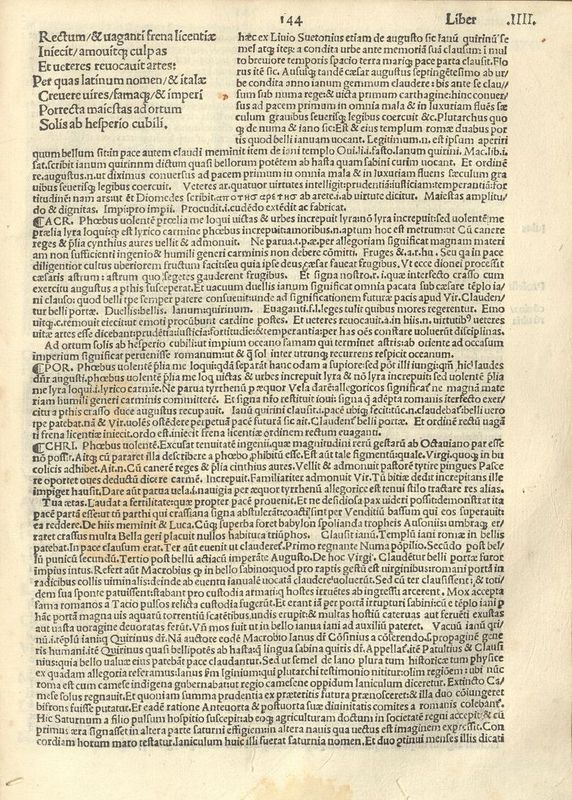 144
Liber .IIII.
Rectum/& uaganti frena licentiæ
Iniecit/amouitq; culpas
Et ueteres reuocauit artes:
Per quas latinum nomen/& italæ
Creuere uires/famaq;/& imperi
Porrecta maiestas ad ortum
Solis ab hesperio cubili.
hæc ex Liuio Suetonius etiam de augusto sic Ianū quirinū se
mel atq; iterū a condita urbe ante memoriā suā clausum: ī mul
to breuiore temporis spacio terra mariq; pace parta clausit. Flo
rus itē sic. Aususq; tandē cæsar augustus septingētesimo ab ur
be condita anno ianum gemmum claudere: bis ante se clau/
sum sub numa rege:& uicta primum carthagine: hinc conuer/
sus ad pacem primum in omnia mala & in luxuriam flués sæ
culum grauibus seuerisq; legibus coercuit &c. Plutarchus quo
q; de numa & iano sic: Est & eius templum romæ duabus por
tis quod belli ianuam uocant. Legitimum.n.est ipsum aperiri
quum bellum sit: in pace autem claudi meminit item de iani templo Oui.li.i.fasto. Ianum quirini. Mac.lib.i.
sat. scribit ianum quirinum dictum quasi bellorum potētem ab hasta quam sabini curim uocant. Et ordinē
re.augustus.n.ut diximus conuersus ad pacem primum in omnia mala & in luxuriam fluens sæculum gra
uibus seuerisq; legibus coercuit. Veteres ar. quatuor uirtutes intelligit: prudentiā: iusticiam: temperantiā: for
titudinē: nam
ab arete.i.ab uirtute dicitur. Maiestas amplitu/
do & dignitas. Imperi: pro imperii. Procudit.i.cudēdo extēdit ac fabricat.
¶ACR. Phœbus uolentē prœlia me loqui uictas & urbes increpuit
prælia lyra loqui: q; est lyrico carmine phœbus increpuit: amoribus.n.aptum hoc est metrum: ut Cū canerē
reges & plia cynthius aures uellit & admonuit. Ne parua.t.p.æ. per allegoriam significat magnam materi
am non sufficienti ingenio & humili generi carminis non debere cōmitti. Fruges &.a.r.hu.
diligentior cultus uberiorem fructum facit: seu quia ipse deus cæsar faueat frugibus.
cæsaris astrum: astrum quo segetes gauderent frugibus. Et signa nostro.r.i.quæ intersecto crasso cum
exercitu augustus a pthis susceperat. Et uacuum duellis ianum significat omnia pacata sub cæsare: tēplo ia/
ni clauso: quod belli tpe semper patere consueuit: unde ad significationem futuræ pacis apud Vir. Clauden/
tur belli portæ. Duellis: bellis. Ianum: quirinum. Euaganti.f.l.leges tulit quibus mores regerentur. Emo
uitq;.eremouit: eiecit ut emoti procubunt cardine postes. Et ueteres reuocauit.a.in his.n.uirtutibꝰ ueteres
uitæ artes esse dicebant: prudētia: iusticia: fortitudine & temperantia: per has oēs constare uoluerūt disciplinas.
Ad ortum solis ab hesperio cubili: ut impium oceano famam qui terminet astris: ab oriente ad occasum
imperium significat peruenisse romanum: ut & q̄ sol inter utrunq; recurrens respicit oceanum.
¶POR. Phœbus uolentē plia me loqui: qdā separāt hanc odam a supiore: sed pōt illi iungi:
augusti.phœbus uolentē plia me loqui uictas & urbes increpuit lyra & nō lyra increpuit: sed uolentē plia
me lyra loqui.i.lyrico carmīe. Ne parua tyrrhenū p æquor Vela darē: allegoricos significat ne magnā mate
riam humili generi carminis committerē. Et signa nrō restituit ioui: signa q̄ adēpta romanis
citu a pthis crasso duce augustus recupauit. Ianū quirini clausit
Et ordinē rectū uagā
ti frena licentiæ iniecit. ordo est. iniecit frena licentiæ ordinem rectum euaganti.
¶CHRI. Phœbus uolentē. Excusat tenuitatē ingenii: quæ magnitudini rerū gestarū ab Octauiano par esse
nō possit. Ait q; cū pararet illa describere a phœbo phibitū esse. Est aūt tale figmentū quale. Virgi. quoq; in bu
colicis adhibet. Ait.n. Cū canerē reges & plia cinthius aures. Vellit & admonuit pastorē tytire pingues Pasce
re oportet oues deductū dicere carmē. Increpuit. Familiariter admonuit Vir.
impiger hausit. Dare aūt parua uela.i.nauigia per æquor tyrrhenū allegorice est tenui stilo tractare res alias.
Tua ætas. Laudat a fertilitate: quæ propter pacē prouenit.
pacē partā esse:
ea reddere. De hiis meminit & Luca. Cūq; superba foret babylon spolianda tropheis Ausoniis umbraq; er/
raret crassus multa Bella geri placuit nullos habitura triūphos. Clausit ianū. Templū iani romæ in bellis
patebat. In pace clausum erat. Ter aūt euenit ut clauderet. Primo regnante Numa pōpilio. Secūdo post bel/
lū punicū secundū. Tertio post bellū actiacū imperāte Augusto. De hoc Virgi. Claudētur belli portæ furor
impius intus. Refert aūt Macrobius q; in bello sabino: quod pro raptis gestū est uirginibus: romani portā in
radicibus collis uiminalis: deinde ab euentu ianualē uocatā claudere uoluerūt. Sed cū ter clausissent:& toti/
dem sua sponte patuissent: stabant pro custodia armati: q; hostes irruētes ab ingressu arcerent. Mox accepta
fama romanos a Tacio pulsos relicta custodia fugerūt. Et erant iā per portā irrupturi sabini: cū e tēplo iani p
hāc portā magna uis aquarū torrentiū scatēribus undis erupit:& multas hostiū cateruas aut feruēti exustas
aut uasta uoragine deuoratas ferūt. Vn̄ mos fuit ut in bello ianua iani ad auxiliū pateret. Vacuū ianū qri/
nū.i.tēplū ianiq; Quirinus dī. Nā auctore eodē Macrobio Ianus dī Cōsinius a cōserendo.s.propaginē gene
ris humani. itē Quirinus quasi belli potēs ab hasta: q; lingua sabina quiris dī. Appellaf.itē Patultius & Clusi
nius: quia bello ualuæ eius patebāt pace claudantur. Sed ut semel de Iano plura tum historicæ tum physicæ
ex quadam allegoria referamus: Ianus
roma est cum camese indigena gubernabatur
mese solus regnauit. Et quoniam summa prudentia ex præteritis futura prænosceret:& illa duo cōiungeret
bifrons fuisse putatur. Et eadē ratione Anteuorta & postuorta suæ diuinitatis comites a romanis colebanf.
Hic Saturnum a filio pulsum hospitio suscepit: ab eoq; agriculturam doctum in societatē regni accepit:& cū
primus æra signasset in altera parte saturni effigiem: in altera nauis qua uectus est imaginem expressit. Con
cordiam horum muro testatur. Ianiculum huic illi fuerat saturnia nomen. Et duo cōtinui menses illis dicati